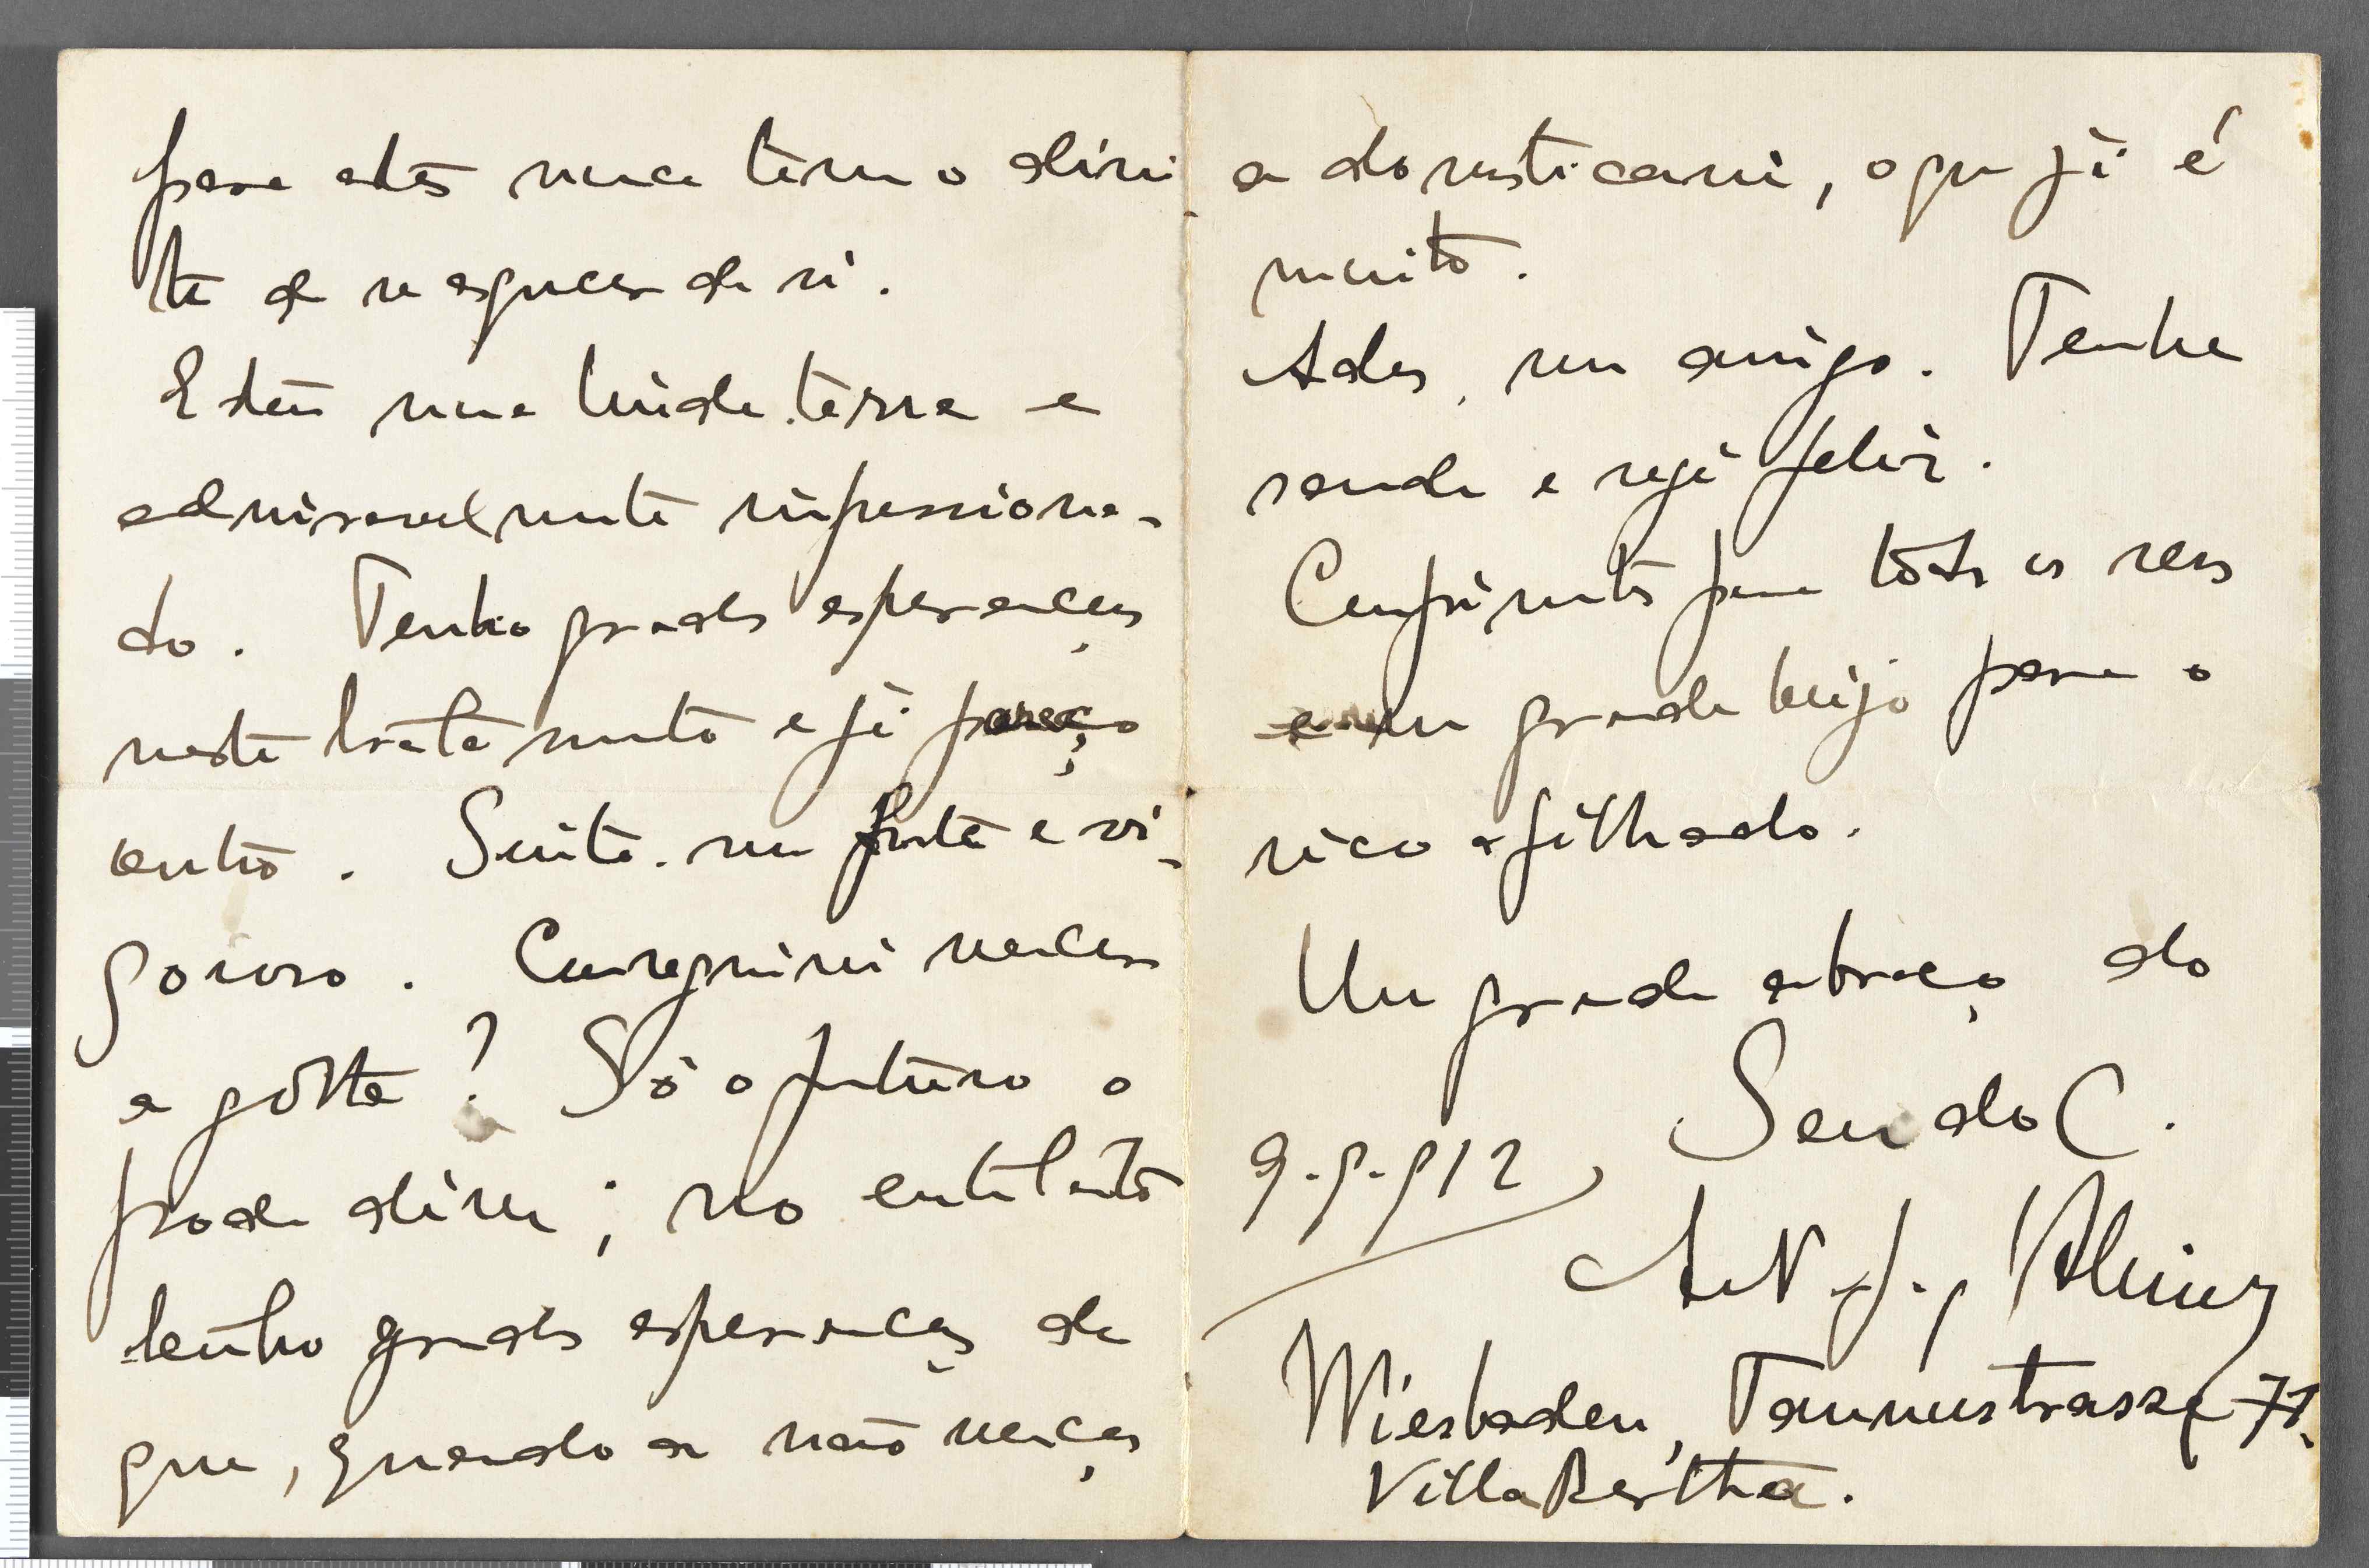 para estes nunca teem o direi-
to de se esquecer de si.
Estou numa linda terra e
admiravelmente impressiona-
do. Tenho grandes esperanças
neste tratamento e já pareço
outro. Sinto-me forte e vi-
goroso. Conseguirei vencer
a gôtta? Só o futuro o
pode dizer; no entretanto
tenho grandes esperanças de
que, quando a não vença,
a domesticarei, o que já é
muito.
Adeus, meu amigo. Tenha
saude e seja feliz.
Cumprimentos para todos os seus
e um grande beijo para o
meu afilhado.
Um grande abraço do
Seu do C.
9-9-912
Wiesbaden, Taunusstrasse 71,
Villa Bertha.